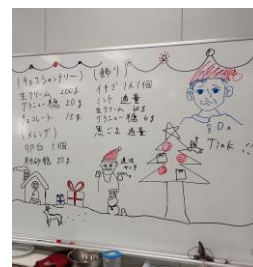 (チョコシャンテリー)
生クリーム 200g
グラニュー糖 20g
チョコレート 15g
(メレンゲ)
卵白 1個
粉砂糖 20g
(飾り)
イチゴ 1人1個
ミント 適量
生クリーム
グラニュー糖 6g
黒ごま 適量